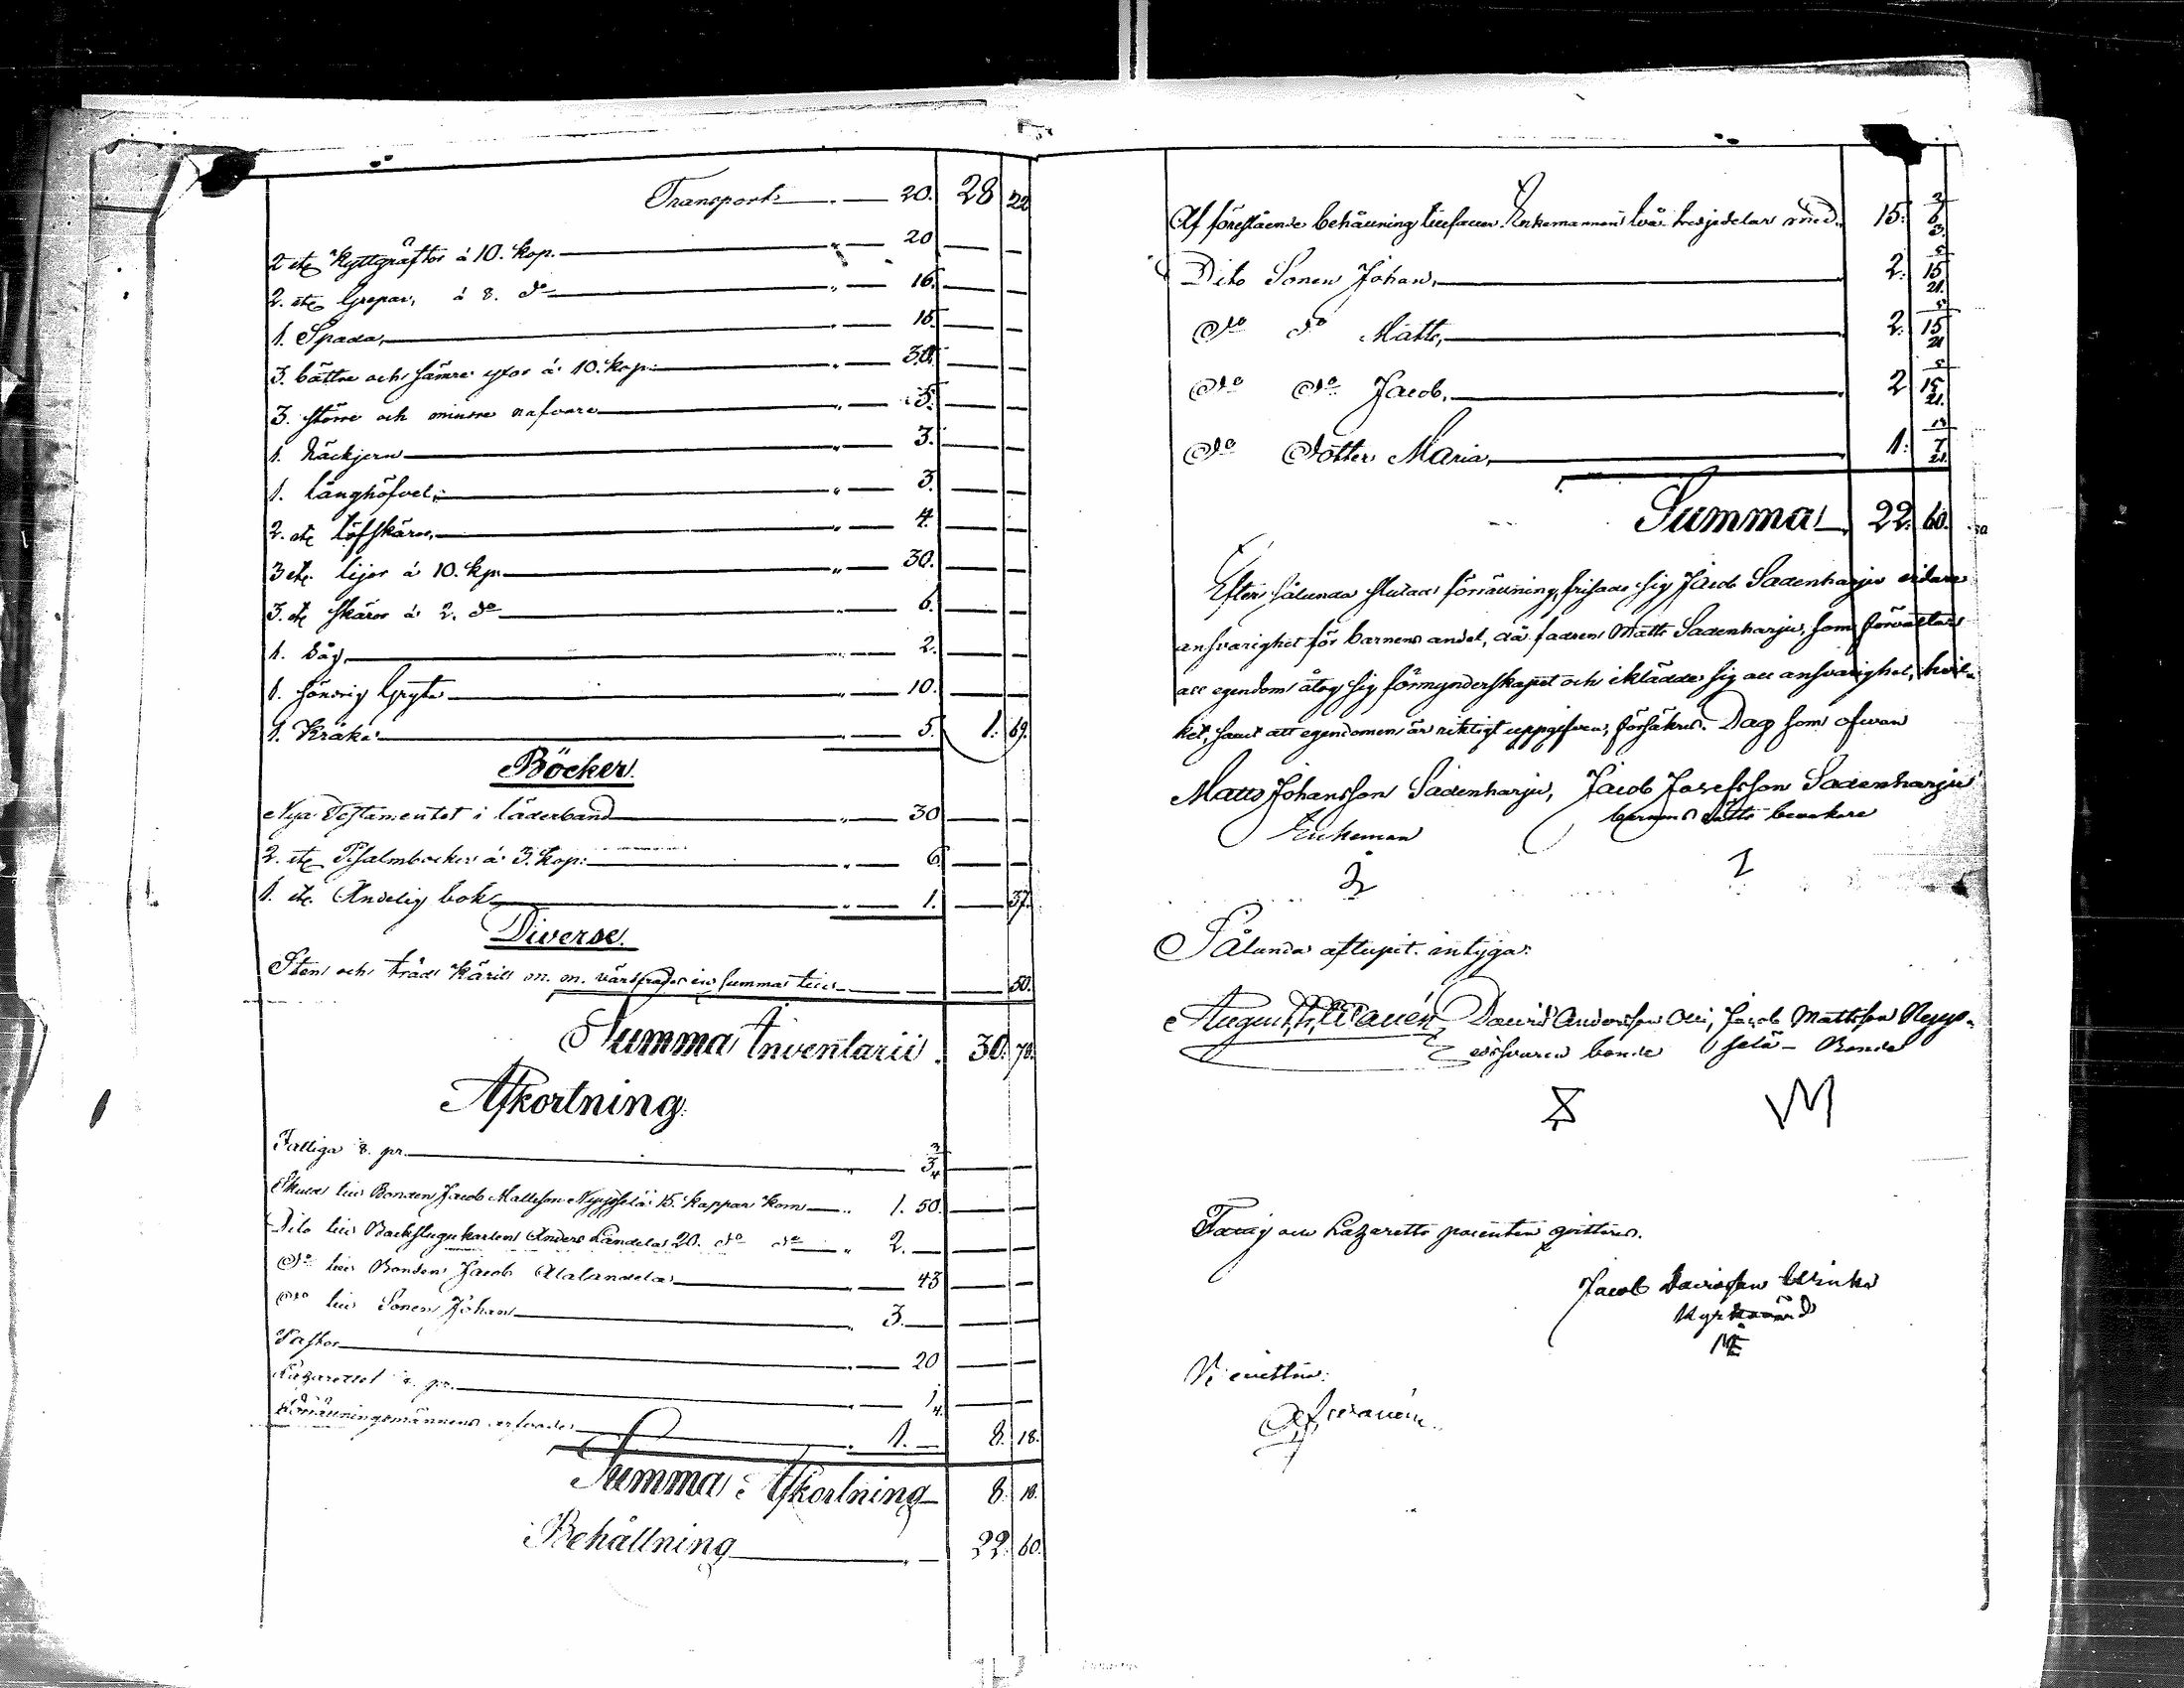 Transport 20. 28 22
2 st Kyttgräftor á 10. kop. 20
2. st Grepar, á 8. do 16.
1. Spada, 15.
3. bättre och sämre yxor á 10. kop. 30.
3. större och mindre nafvare 5.
1. Räckjern 3.
1. långhöfvel, 3.
2. st Löfskäror, 4.
3 st. lijor á 10. kp. 30.
3. st skäror á 2. do 6.
1. Såg, 2.
1. söndrig Gryta 10.
1. Kräka 5. 1. 69.
Böcker.
Nya Testamentet i läderband 30
2. st Psalmböcker á 3. kop: 6.
1. st. Andelig bok 1. 37.
Diverse.
Sten och träd Käril m. m. värderades en summa till 50.
Summa Inventarii 30. 78.
Afkortning.
Fattiga 8. pr. 3 3/4
Skuld till Bonden Jacob Mattsson Nyysselä 15. kappar korn 1. 50.
Dito till Backstugukarlen Anders Landela 20. do do 2.
Do till Bonden Jacob Alalandela 43
Do till Sonen Johan 3.
Pastor 20
Lazarettet pr. 1/4
Förrättningsmännens arfvode 1. 8. 18.
Summa Afkortning 8. 18.
Behållning 22. 60.
Af förestående behållning tillfaller Enkemannen två tredjedelar med 15. 6 2/3
Dito Sonen Johan, 2. 15 5/21
Do do Matts, 2. 15 5/21
Do do Jacob, 2 15 5/21
Do Dotter Maria, 1. 7 13/21
Summa 22. 60.
Efter sålunda slutad förrättning, frisade sig Jacob Sadenharju vidare
ansvarighet för barnens andel, då fadren Matts Sadenharju, som förvaltar
all egendom åtog sig förmynderskapet och iklädde sig all ansvarighet, hvil-
ket, samt att egendomen är riktigt uppgifven, försäkras. Dag som ofvan
Matts Johansson Sadenharju, Jacob Josefsson Sadenharju
Enkeman barnens rätts bevakare
Sålunda aflupit intyga:
August David Andersson Alli, Jacob Mattsson Nyys-
edsvuren bonde selä - Bonde
Fattig och Lazaretts procenten qvitteras.
Jacob Davidsson
Kyrkovärd